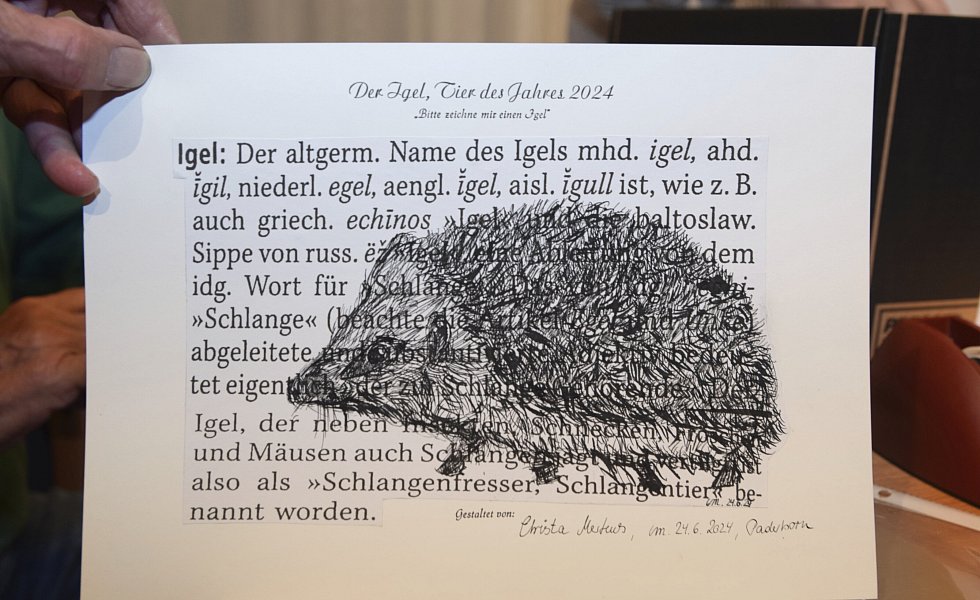 Der Igel, Tier des Jahres 2024
„Bitte zeichne mir einen Igel“
Igel: Der altgerm. Name des Igels mhd. igel, ahd.
igil, niederl. egel, aengl. igel, aisl. igull ist, wie z. B.
auch griech. echīnos »Igel« und die baltoslaw.
Sippe von russ. ëž »Igel«, eine Ableitung von dem
idg. Wort für »Schlange«. Das von idg.
»Schlange« (beachte die Artikel Egel und Unke)
abgeleitete und substantivierte Adjektiv bedeu-
tet eigentlich »der zur Schlange gehörende«. Der
Igel, der neben Insekten, Schnecken, Fröschen
und Mäusen auch Schlangen jagt und vertilgt, ist
also als »Schlangenfresser, Schlangentier« be-
nannt worden.
Gestaltet von: Christa Mertens, im 24.6.2024, Paderborn